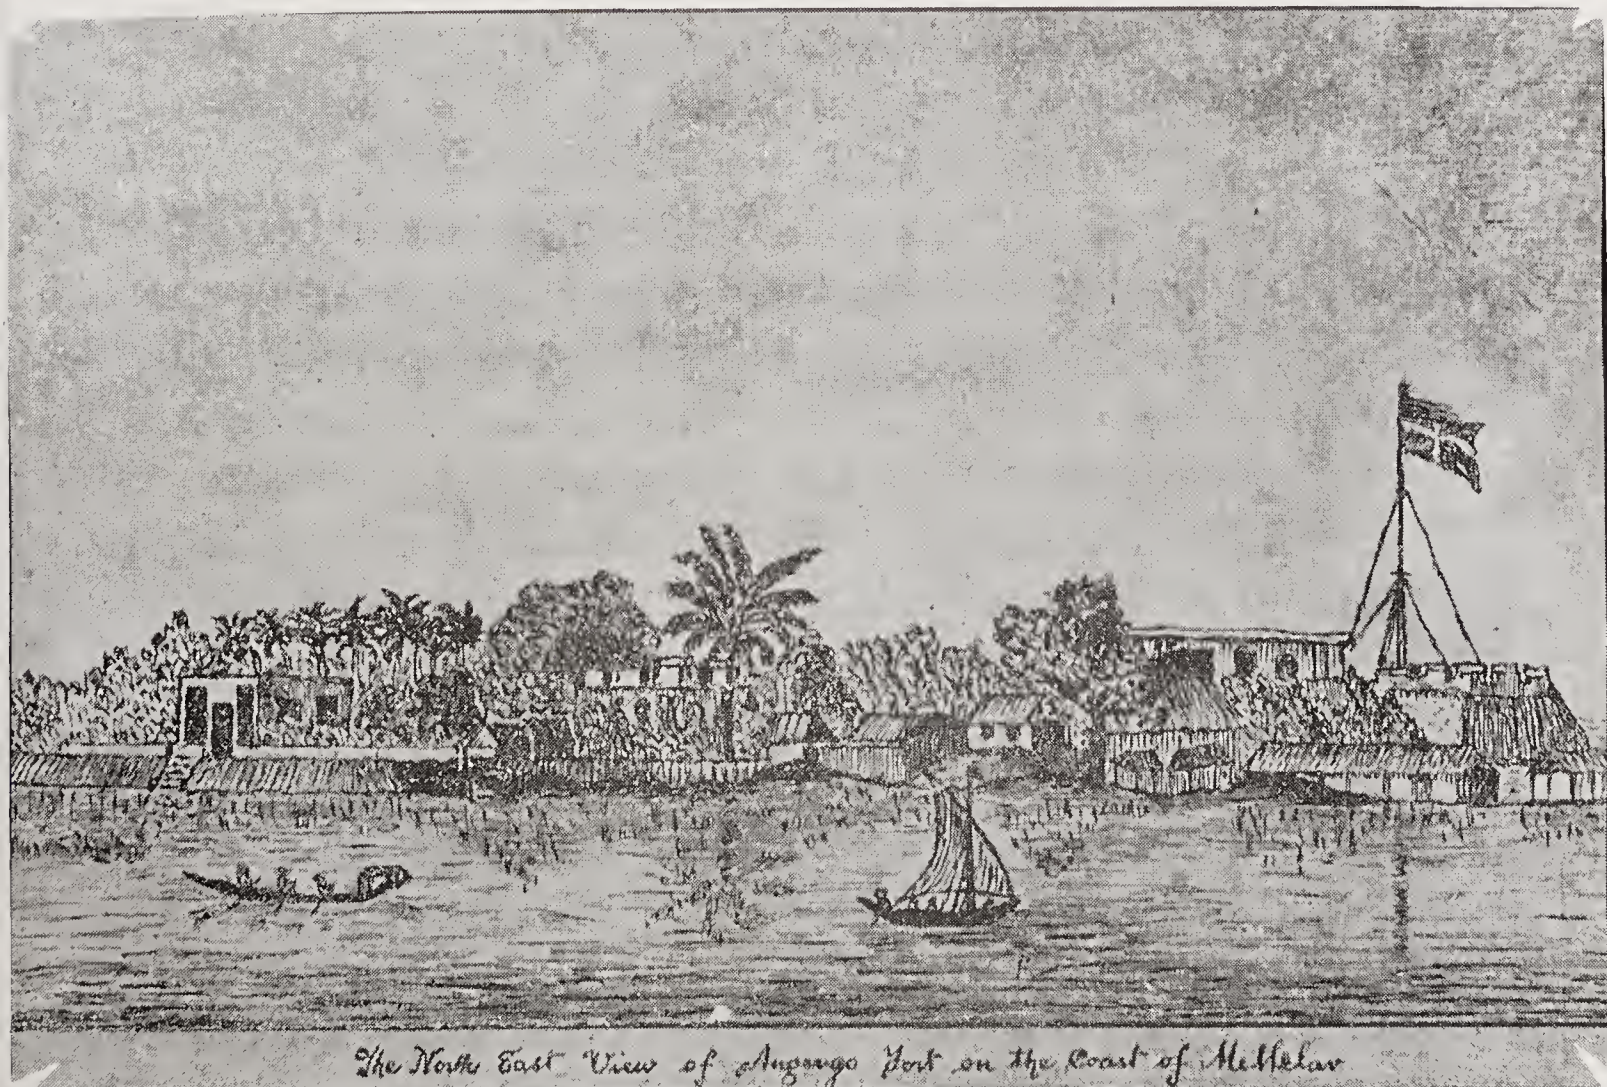 The North East View of Angengo Fort on the Coast of Mellelav